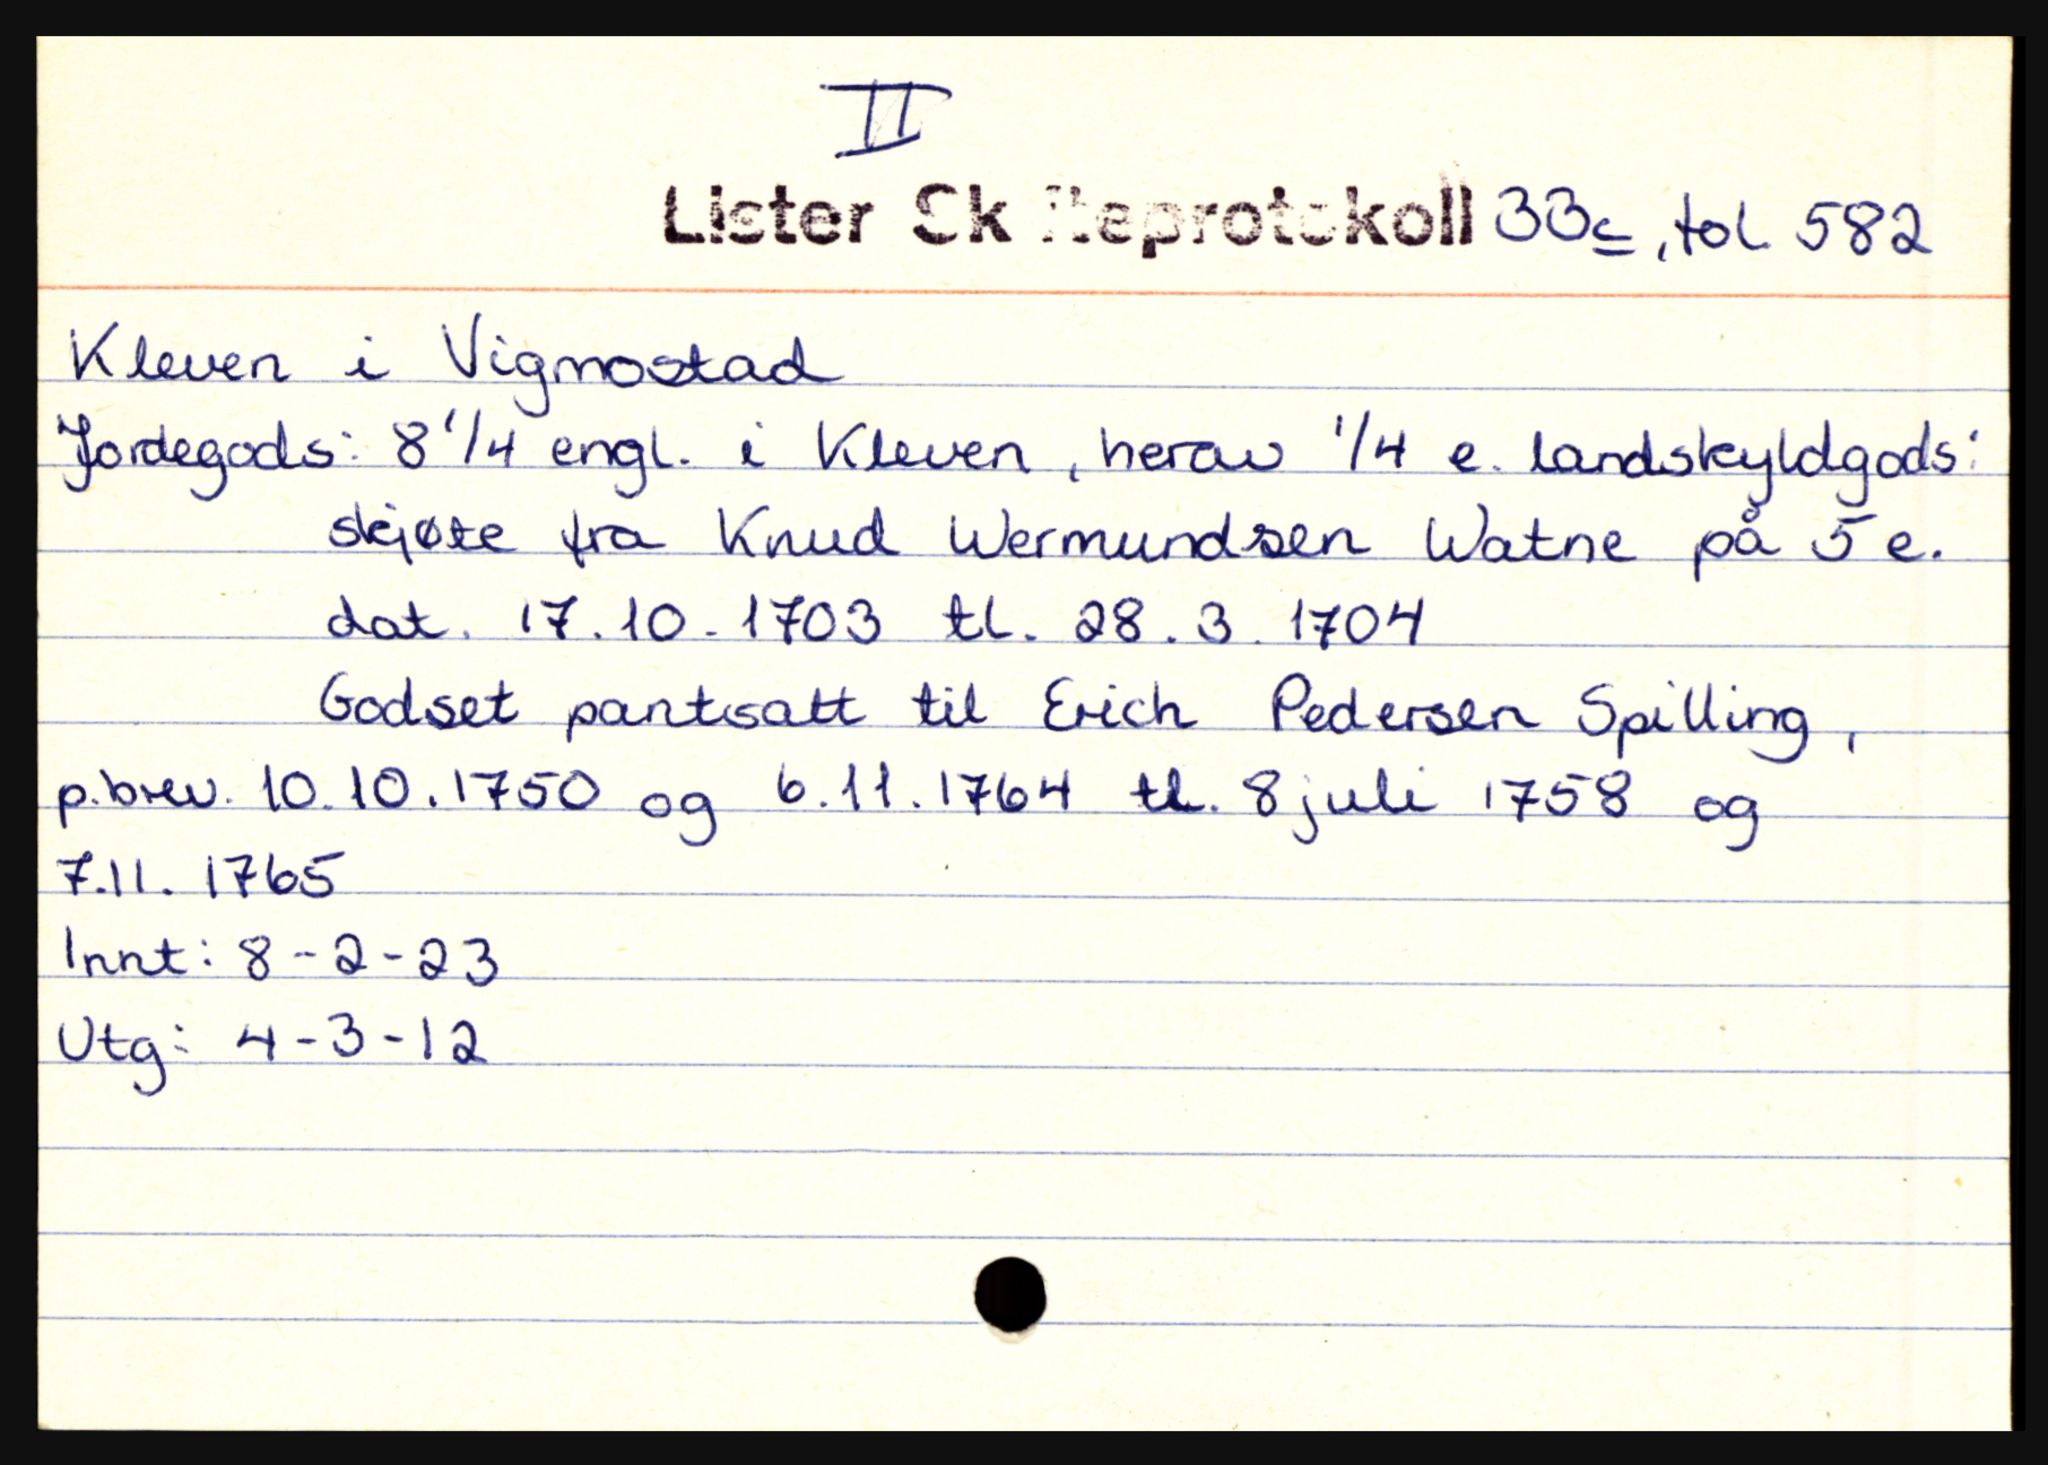 II
Lister Skifteprotokoll 33c, fol. 582
Kleven i Vigmostad
Jordegods: 8 1/4 engl. i Kleven, herav 1/4 e. landskyldgods:
skjøte fra Knud Wermundsen Watne på 5 e.
dat. 17.10.1703 tl. 28.3.1704
Godset pantsatt til Erich Pedersen Spilling,
p.brev. 10.10.1750 og 6.11.1764 tl. 8 juli 1758 og
7.11.1765
Innt: 8-2-23
Utg: 4-3-12